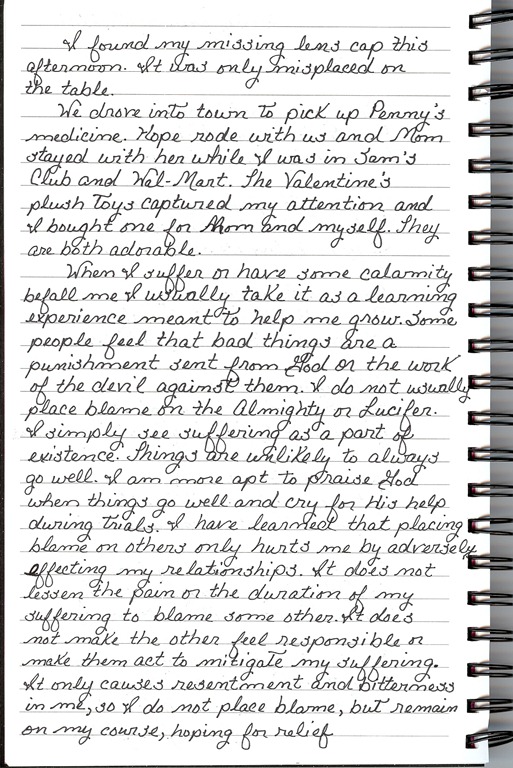 I found my missing lens cap this
afternoon. It was only misplaced on
the table.
We drove into town to pick up Penny's
medicine. Hope rode with us and Mom
stayed with her while I was in Sam's
Club and Wal-Mart. The Valentine's
plush Toys captured my attention and
I bought one for Mom and myself. They
are both adorable.
When I suffer or have some calamity
befall me I usually take it as a learning
experience meant to help me grow. Some
people feel that bad things are a
punishment sent from God or the work
of the devil against them. I do not usually
place blame on the Almighty or Lucifer.
I simply see suffering as a part of
existence. Things are unlikely to always
go well. I am more apt to praise God
when things go well and cry for His help
during trials. I have learned that placing
blame on others only hurts me by adversely
effecting my relationships. It does not
lessen the pain or the duration of my
suffering to blame some other. It does
not make the other feel responsible or
make them act to mitigate my suffering.
It only causes resentment and bitterness
in me, so I do not place blame, but remain
on my course, hoping for relief